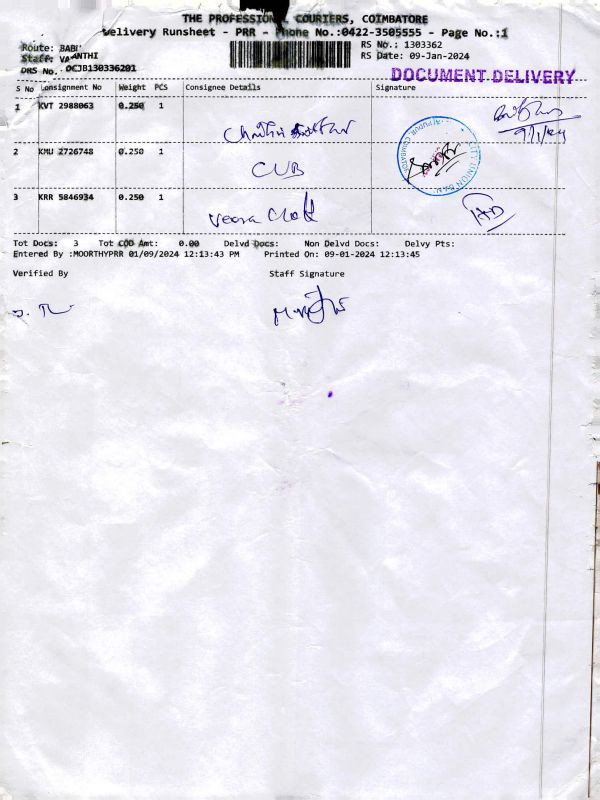 THE PROFESSIONAL COURIERS, COIMBATORE
Delivery Runsheet - PRR - Phone No.:0422-3505555 - Page No.:1
Route: BABI
RS No.: 1303362
Staff: VA ANTHI
RS Date: 09-Jan-2024
DRS No. OCJB130336201
DOCUMENT DELIVERY
S No Consignment No Weight PCS Consignee Details Signature
1 KVT 2988063 0.250 1
9/1/24
2 KMU 2726748 0.250 1 CUB
CITY UNION BAN
COIMBATORE
3 KRR 5846934 0.250 1 Veera
Tot Docs: 3 Tot COD Amt: 0.00 Delvd Docs: Non Delvd Docs: Delvy Pts:
Entered By :MOORTHYPRR 01/09/2024 12:13:43 PM Printed On: 09-01-2024 12:13:45
Verified By Staff Signature